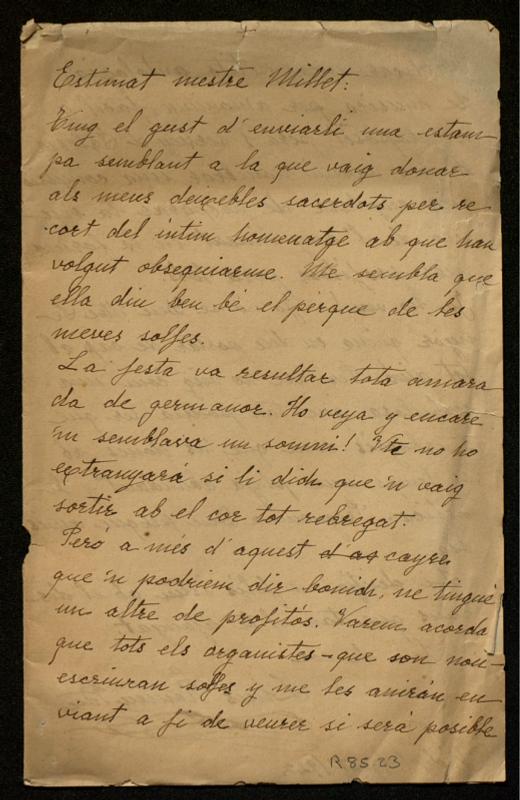 Estimat mestre Millet:
Ting el gust d'enviarli una estam-
pa semblant a la que vaig donar
als meus deixebles sacerdots per re
cort del intim homenatge ab que han
volgut obsequiarme. Me sembla que
ella diu ben bé el perque de les
meves solfes.
La festa va resultar tota amara
da de germanor. Ho veya y encare
'm semblava un somni! Vte no ho
extranyará si li dich que 'n vaig
sortir ab el cor tot rebregat.
Peró a més d'aquest d'as cayre
que 'n podriem dir bonich, ne tingué
un altre de profitós. Varem acorda
que tots els organistes - que son nou-
escriuran solfes y me les anirán en
viant a fi de veurer si será posible
R 85 23